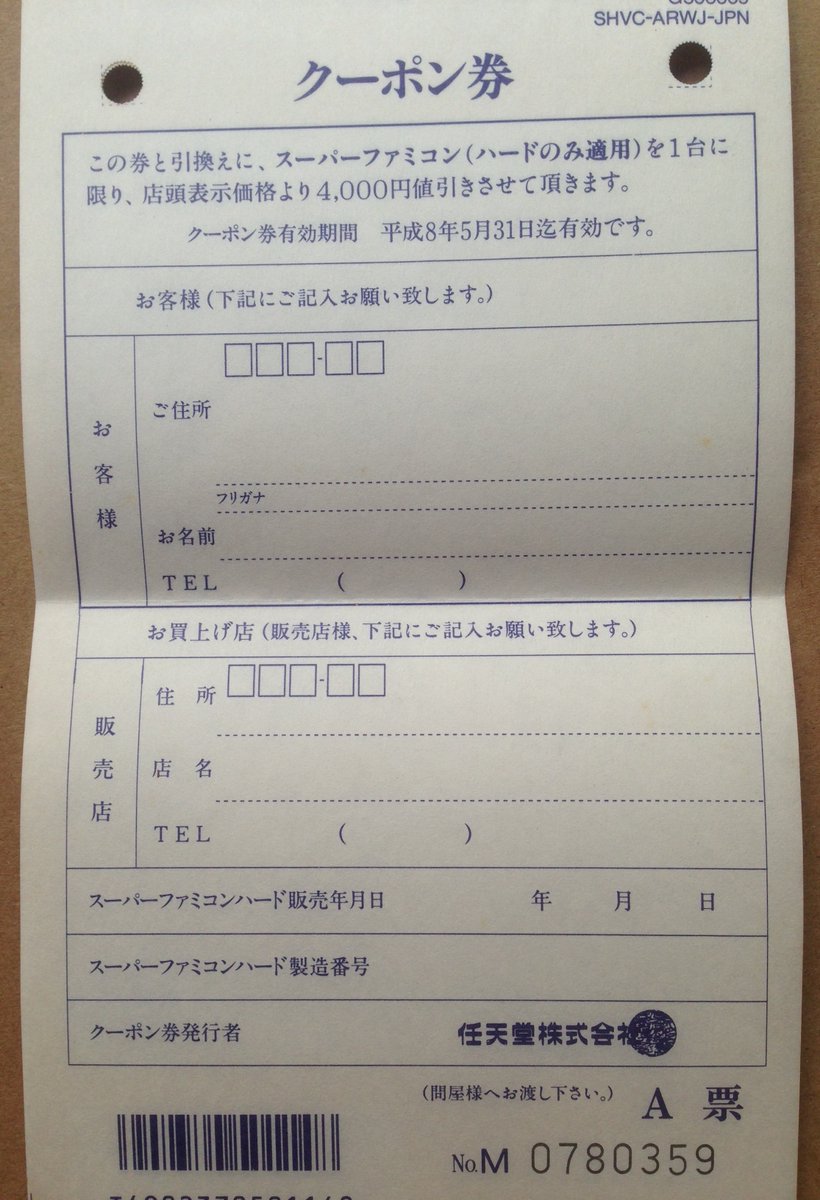 SHVC-ARWJ-JPN
クーポン券
この券と引換えに、スーパーファミコン(ハードのみ適用)を1台に
限り、店頭表示価格より4,000円値引きさせて頂きます。
クーポン券有効期間　平成8年5月31日迄有効です。
お客様(下記にご記入お願い致します。)
お客様
ご住所
フリガナ
お名前
TEL (　　)
お買上げ店(販売店様、下記にご記入お願い致します。)
販売店
住所
店名
TEL (　　)
スーパーファミコンハード販売年月日　年　月　日
スーパーファミコンハード製造番号
クーポン券発行者　任天堂株式会社
(問屋様へお渡し下さい。) A 票
No.M 0780359